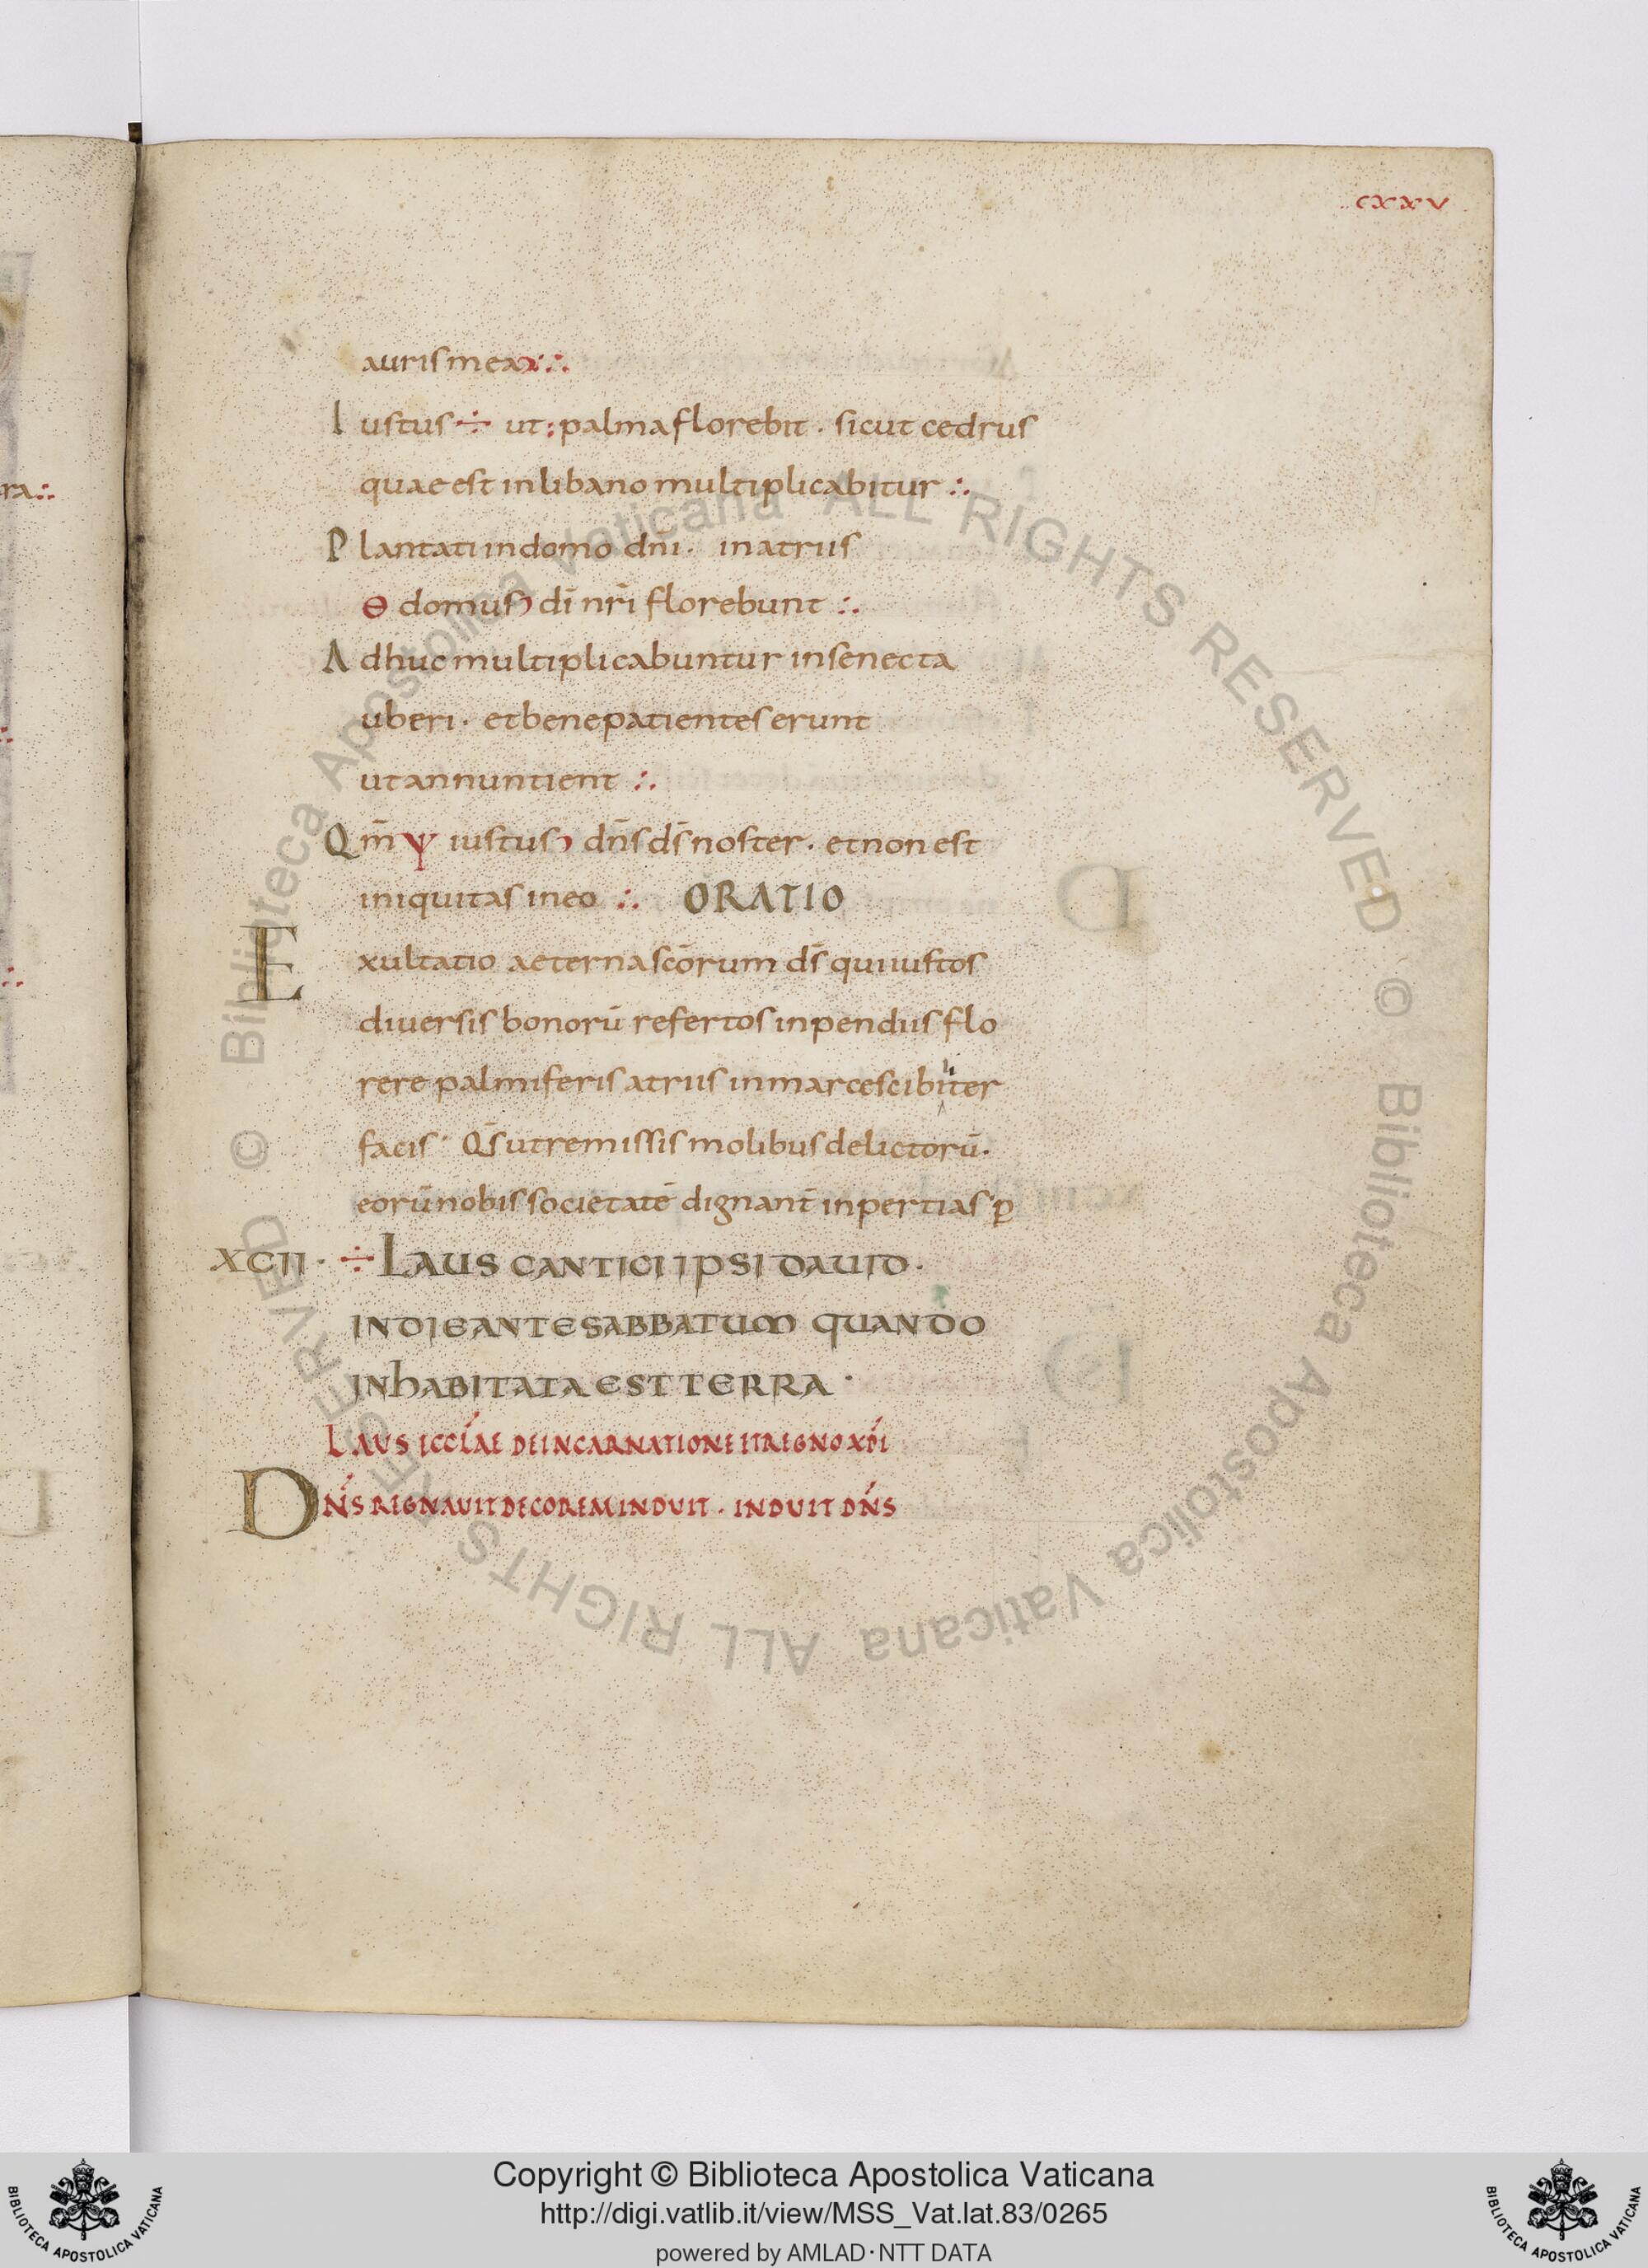 CXXV
auris mea ∴
Iustus ÷ ut: palma florebit · sicut cedrus
quae est in libano multiplicabitur ∴
Plantati in domo dn̄i · in atriis
ɵ domus di̅ nr̄i florebunt ∴
Adhuc multiplicabuntur in senecta
uberi · et bene patientes erunt
ut annuntient ∴
Qm̄ ψ iustus dn̄s ds̄ noster · et non est
iniquitas in eo ∴ ORATIO
Exultatio aeterna scōrum ds̄ qui iustos
diuersis bonorū refertos inpendiis flo
rere palmiferis atriis inmarcescibiliter
facis · Qs̄ ut remissis molibus delictorū ·
eorū nobis societatē dignant̄ inpertias p̱
XCII · ÷ LAUS CANTICI IPSI DAUID ·
IN DIE ANTE SABBATUM QUANDO
INHABITATA EST TERRA ·
LAUS ECCL̄AE DE INCARNATIONE ET REGNO XP̄I
DN̄S REGNAUIT DECOREM INDUIT · INDUIT DN̄S
ra ∴
© Biblioteca Apostolica Vaticana ALL RIGHTS RESERVED © Biblioteca Apostolica Vaticana ALL RIGHTS RESERVED
Copyright © Biblioteca Apostolica Vaticana
http://digi.vatlib.it/view/MSS_Vat.lat.83/0265
powered by AMLAD·NTT DATA
BIBLIOTECA APOSTOLICA VATICANA
BIBLIOTECA APOSTOLICA VATICANA